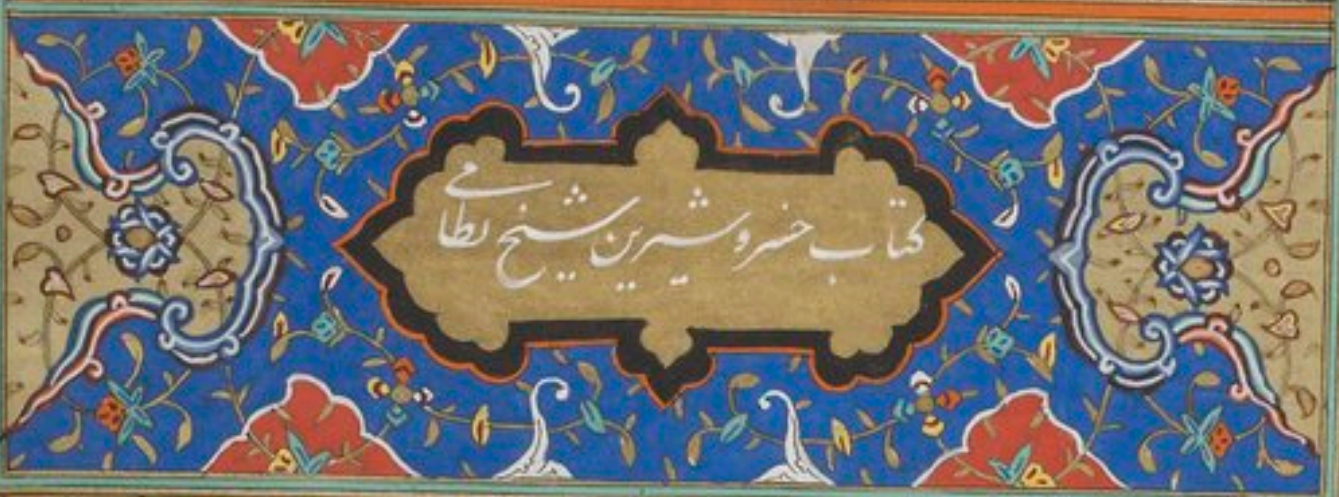 کتاب خسرو شیرین شیخ نظامی